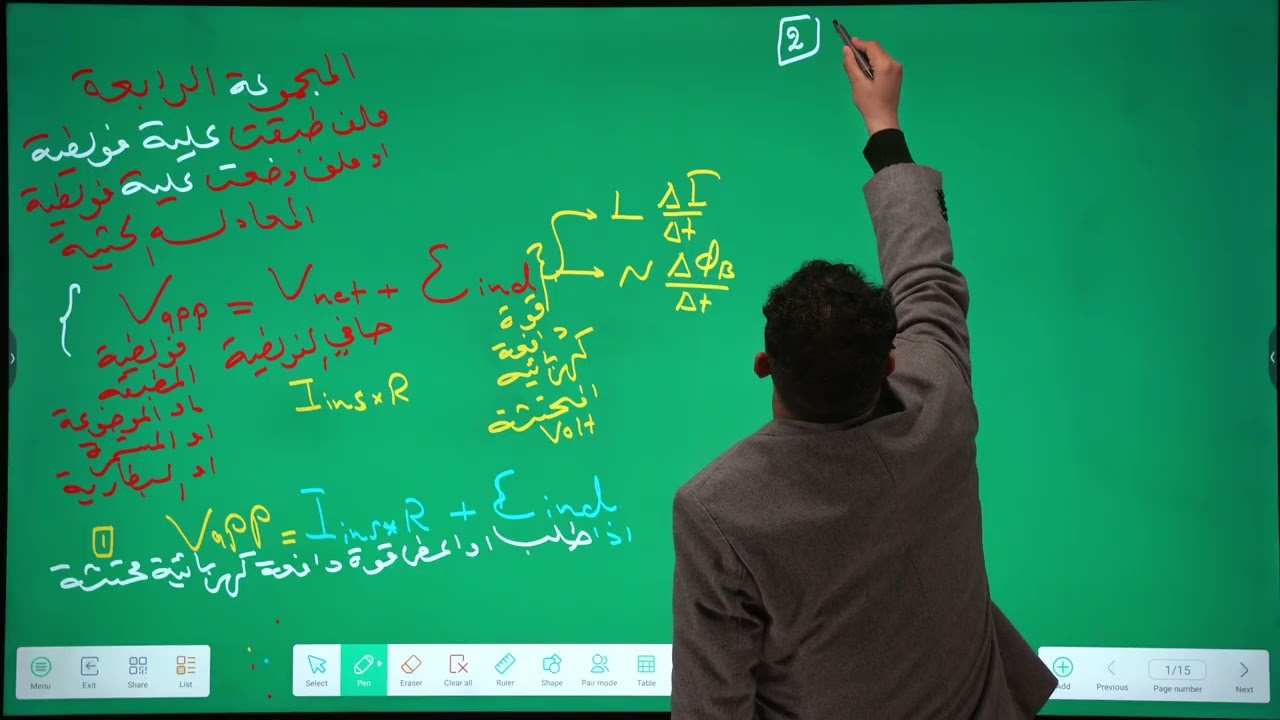 2
المجموعة الرابعة
ملف طبقت علية فولطية
او ملف وضعت علية فولطية
المعادلة الحثية
V app = V net + Ɛ ind
L ΔI/Δt
N ΔΦB/Δt
فولطية
المطبقة
او الموضوعة
او المستمرة
او البطارية
صافي الفولطية
I ins × R
قوة
دافعة
كهربائية
المحتثة
Volt
1 Vapp = I ins × R + Ɛ ind
اذا طلب او اعطى قوة دافعة كهربائية محتثة
Menu Exit Share List
Select Pen Eraser Clear all Ruler Shape Pair mode Table
Add Previous 1/15 Page number Next